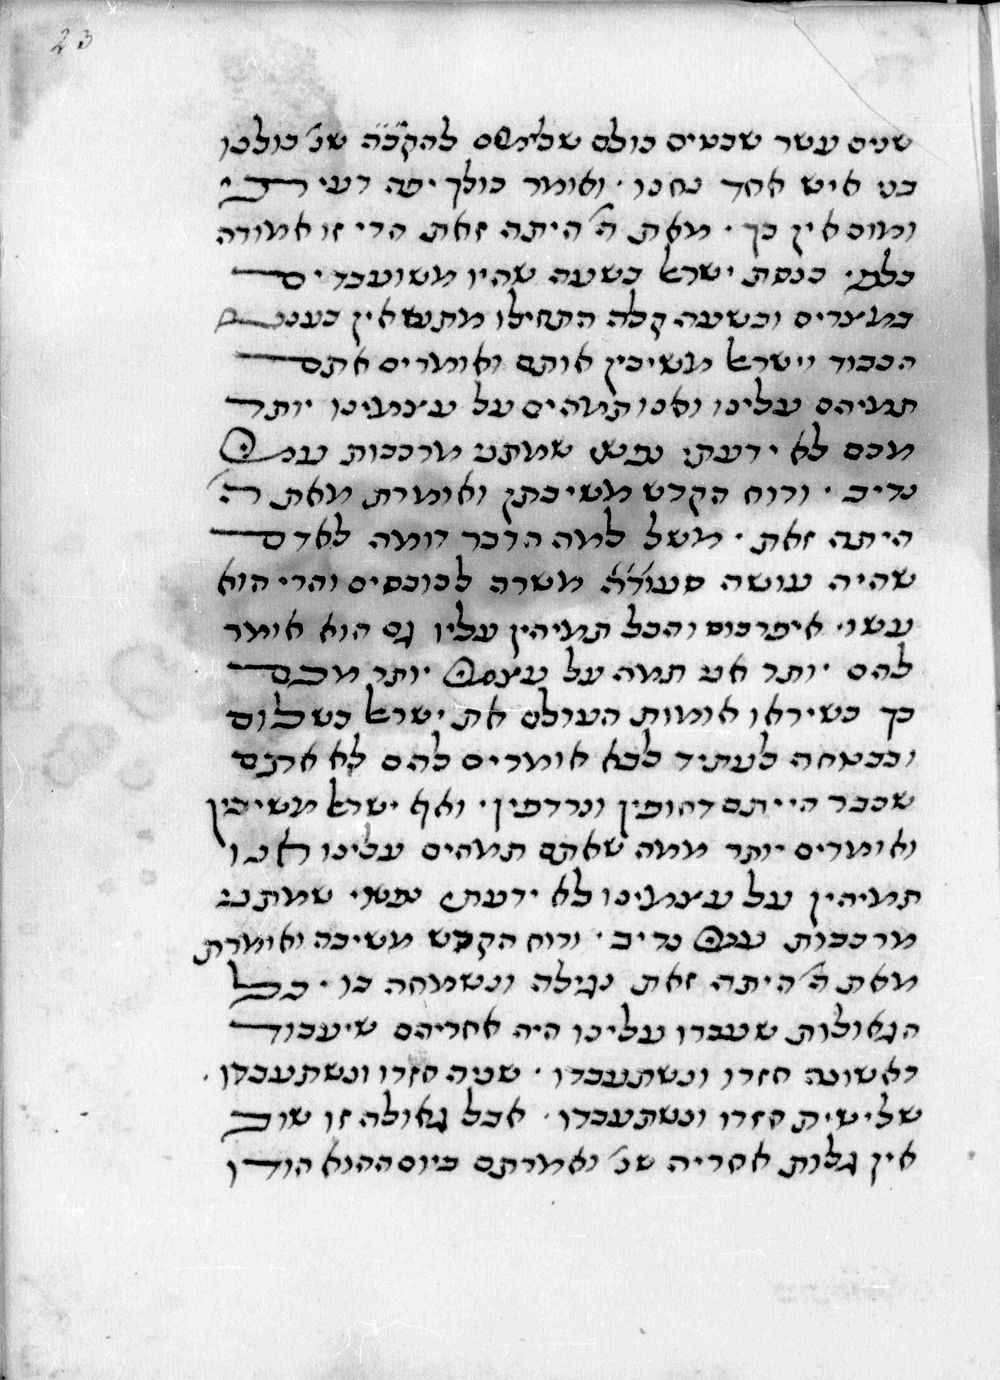 23
שנים עשר שבטים כולם שלימים להקב״ה שנ׳ כולנו
בני איש אחד נחנו · ואומר כולך יפה רעיתי
ומום אין בך · מאת ה׳ היתה זאת הרי זו אמורה
כלפי כנסת ישראל בשעה שהיו משועבדים
במצרים ובשעה קלה התחילו מתעטאין בענני
הכבוד וישראל משיבין אותם ואומרים אתם
תמיהם עלינו ואנו תמהים על עצמינו יותר
מכם לא ידעתי נפשי שמתני מרכבות עמי
נדיב · ורוח הקדש משיבתן ואומרת מאת ה׳
היתה זאת · משל למה הדבר דומה לאדם
שהיה עושה סעודה משרה לכוכסים והרי הוא
עשוי איפרכוס והכל תמיהין עליו גם הוא אומר
להם יותר אני תמה על עצמי יותר מכם
כך כשיראו אומות העולם את ישראל בשלום
ובבטחה לעתיד לבא אומרים להם לא אתם
שכבר הייתם דחופין ונרדפין · ואף ישראל משיבין
ואומרים יותר ממה שאתם תמהים עלינו אנו
תמיהין על עצמינו לא ידעתי נפשי שמתני
מרכבות עמי נדיב · ורוח הקדש משיבה ואומרת
מאת ה׳ היתה זאת נגילה ונשמחה בו · בכל
הגאולות שעברו עלינו היה אחריהם שיעבוד
ראשונה חזרו ונשתעבדו · שניה חזרו ונשתעבדו ·
שלישית חזרו ונשתעבדו · אבל גאולה זו שוב
אין גלות אחריה שנ׳ ואמרתם ביום ההוא הודו